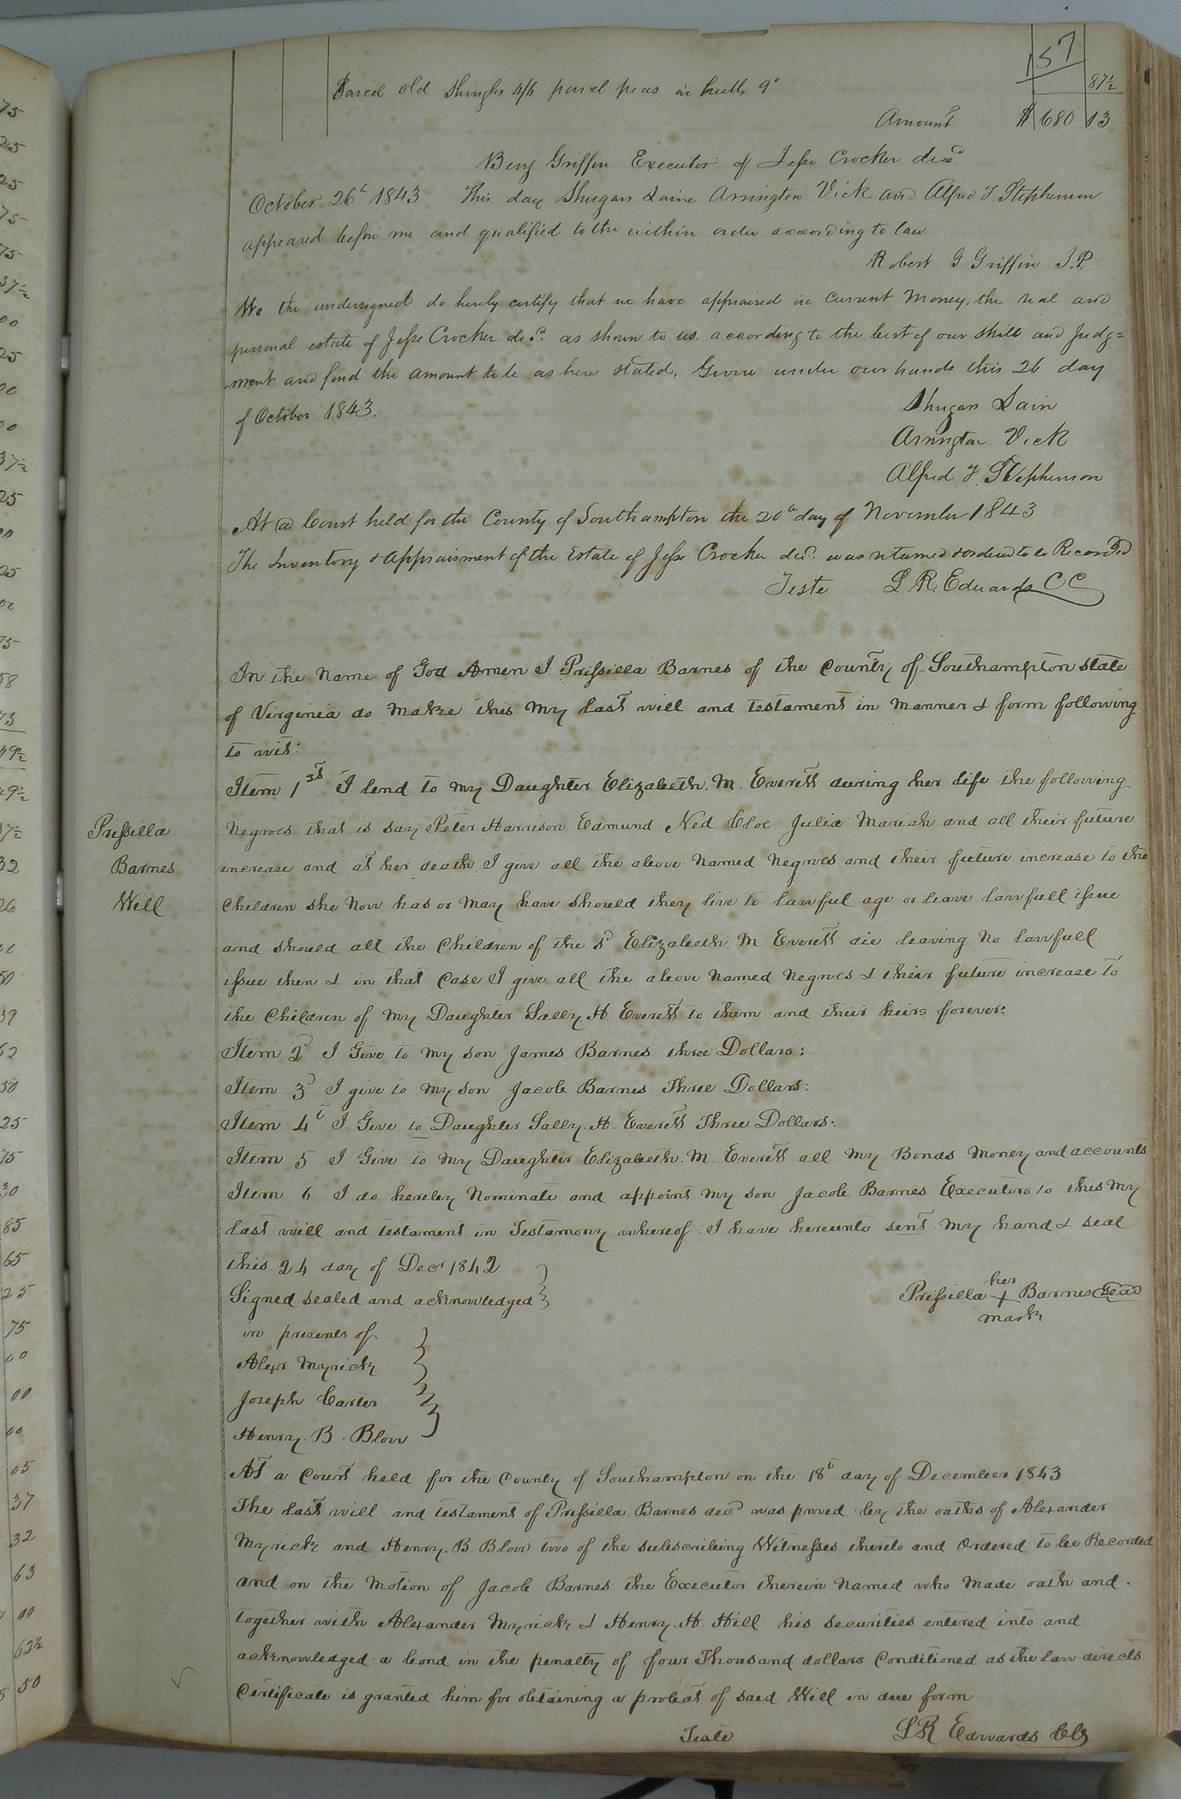 157
Parcel old Shingles 4/6 parcel peas in hulls 9s 87½
Amount $ 680 13
Benj Griffin Executor of Jesse Crocker decd
October 26t 1843 This day Shugars Laine Arrington Vick and Alfred J. Stephenson
appeared before me and qualified to the within order according to law
Robert G Griffin J.P.
We the undersigned do hereby certify that we have appraised in Current Money, the real and
personal estate of Jesse Crocker decd. as shown to us according to the best of our skill and Judg=
ment and find the amount to be as here stated, Given under our hands this 26 day
of October 1843.
Shugars Lain
Arrington Vick
Alfred J. Stephenson
At @ Court held for the County of Southampton the 20th day of November 1843
The Inventory & Appraisment of the Estate of Jesse Crocker decd. was returned & ordered to be Recorded
Teste L R. Edwards CC
In the Name of God Amen I Prissilla Barnes of the County of Southampton state
of Virginia do make this my last will and testament in manner & form following
to wit:
Item 1st I lend to my Daughter Elizabeth. M. Everett during her life the following
Prissilla
Barnes
Will
Negroes that is say Peter Harrison Edmund Ned Cloe Julia Mariah and all their future
increase and at her death I give all the above Named Negroes and their future increase to the
Children she Now has or may have should they live to lawful age or leave lawfull issue
and should all the Children of the sd Elizabeth M Everett die leaving No lawfull
issue then & in that Case I give all the above Named Negroes & their future increase to
the Children of my Daughter Sally H Everett to them and their heirs forever:
Item 2d I Give to my son James Barnes three Dollars:
Item 3d I give to my son Jacob Barnes Three Dollars:
Item 4t I Give to Daughter Sally. H. Everett Three Dollars:
Item 5 I Give to my Daughter Elizabeth. M. Everett all my Bonds Money and accounts
Item 6 I do hereby Nominate and appoint my son Jacob Barnes Executors to this my
last will and testament in Testamony whereof I have hereunto sent my hand & seal
this 24 day of Decr 1842
Signed sealed and acknowledged
in presents of
Alexr Myrick
Joseph Carter
Henry. B. Blow
her
Prissilla + Barnes Seal
mark
At a Court held for the County of Southampton on the 18t day of December 1843
The last will and testament of Prissilla Barnes decd was proved by the oaths of Alexander
Myrick and Henry. B. Blow two of the subscribing Witnesses thereto and Ordered to be Recorded
and on the Motion of Jacob Barnes the Executor therein Named who Made oath and.
together with Alexander Myrick & Henry. H. Hill his securities entered into and
acknowledged a bond in the penalty of four Thousand dollars Conditioned as the Law directs
Certificate is granted him for obtaining a probat of said Will in due form
Teste LR Edwards Clk